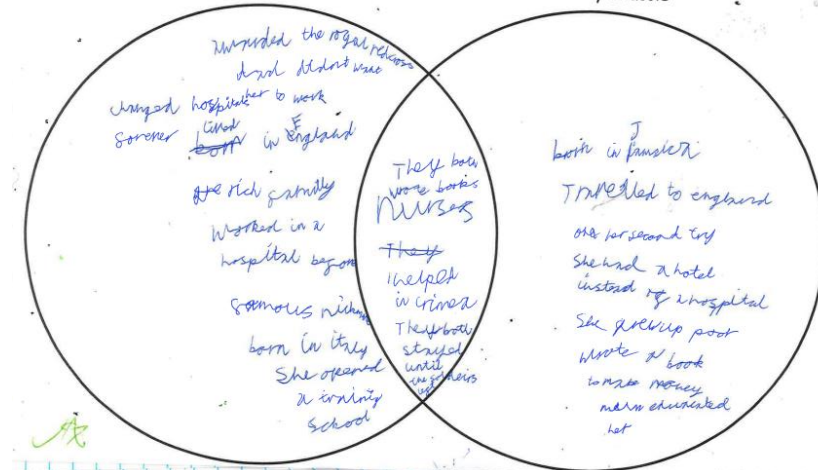 awarded the royal redcross
dad didnt want
her to work
changed hospitals
forever
lived in England
rich family
Worked in a
hospital before
famous nickname
born in itay
She opened
a training
school
They both
wrote books
nurses
They
helped
in crimea
They both
stayed
until
born in Jamaica
Travelled to england
on her second try
She had a hotel
instead of a hospital
She grew up poor
wrote a book
to make money
mum
her